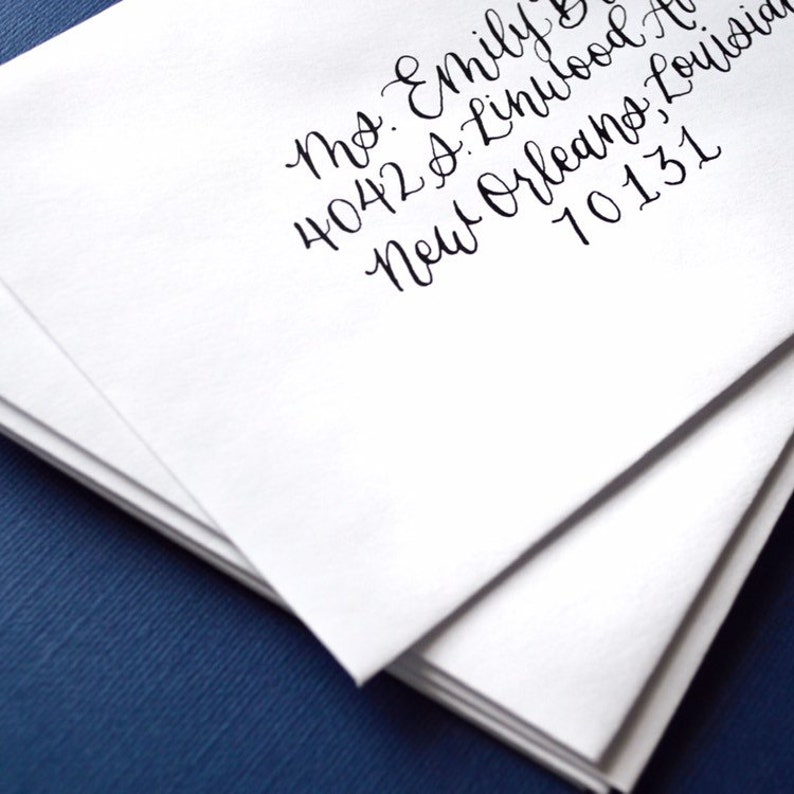 Ms. Emily B
4042 S. Linwood Av
New Orleans, Louisian
70131